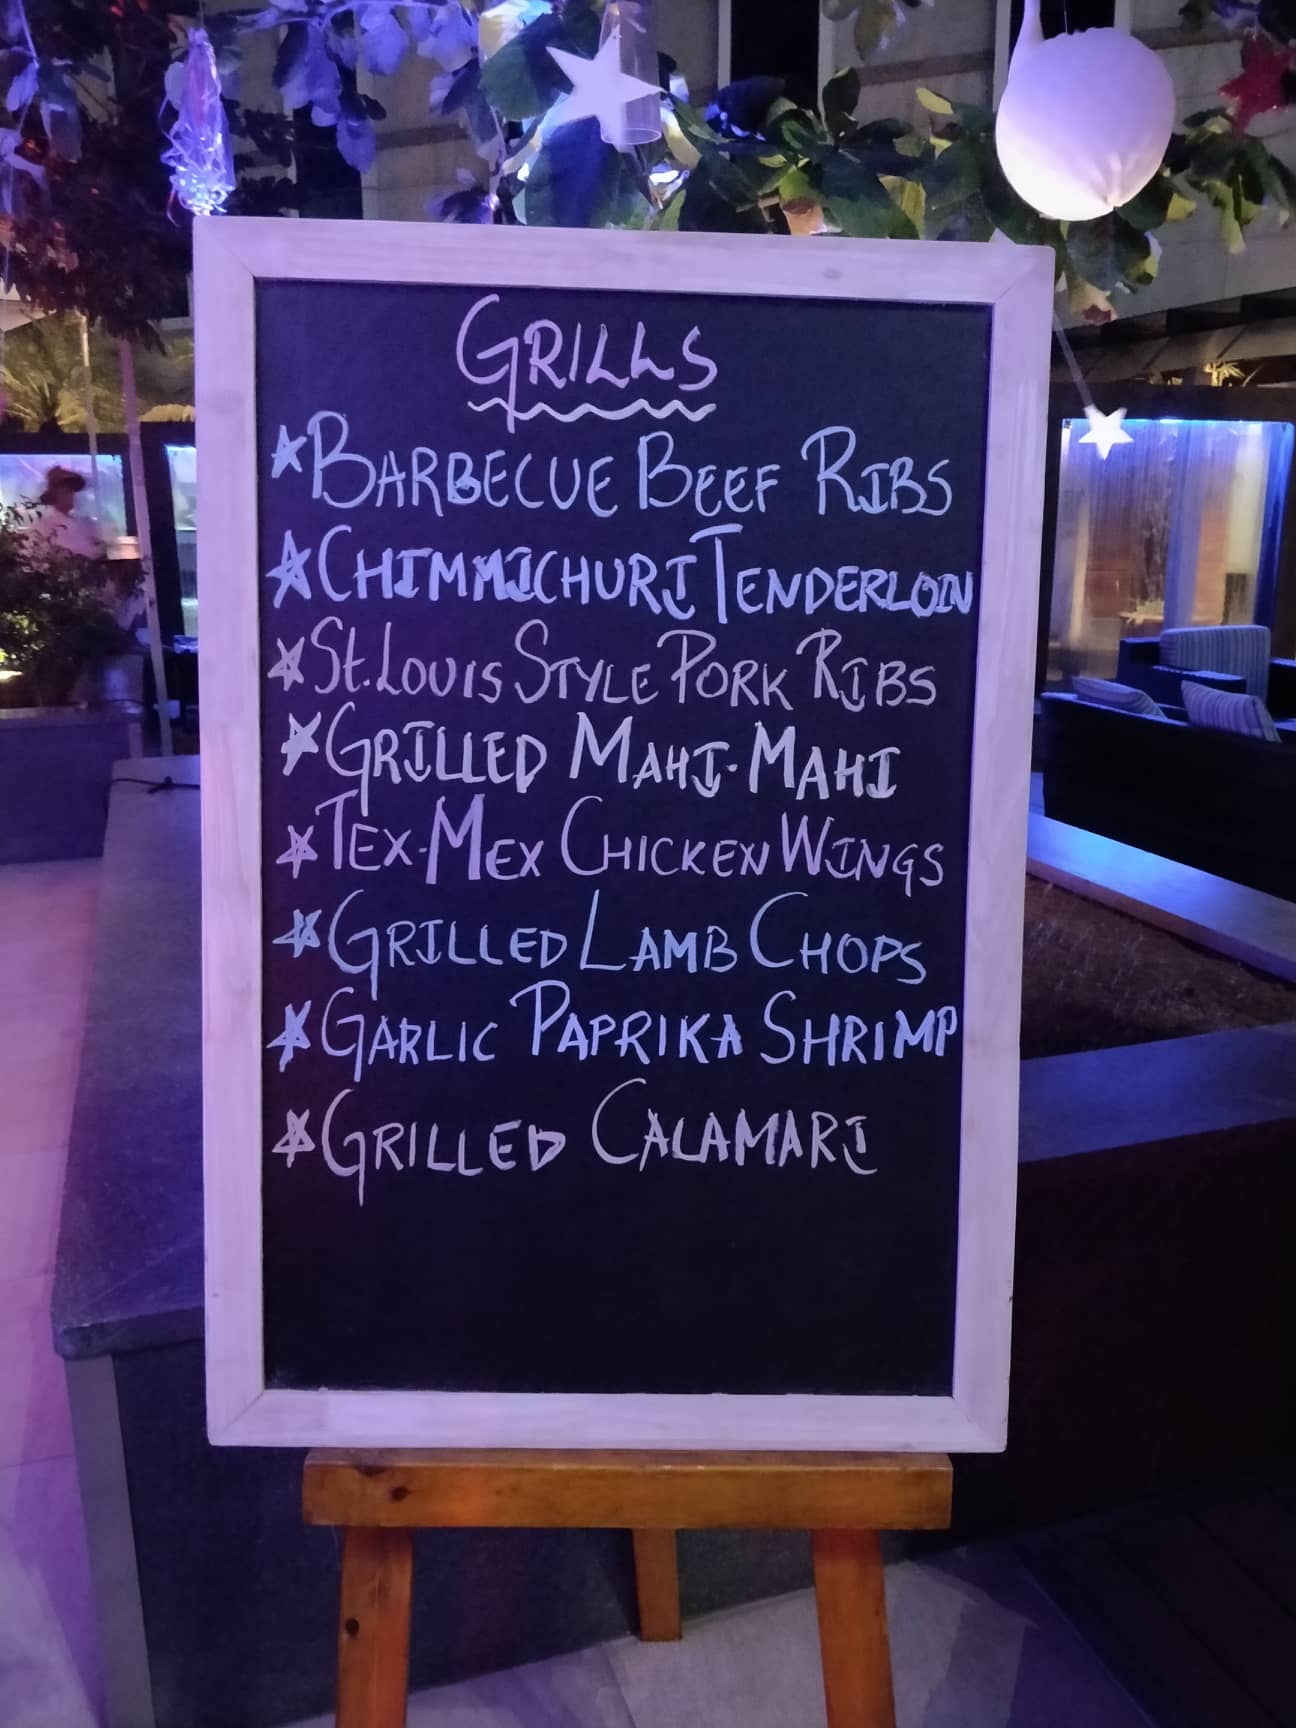 GRILLS
*BARBECUE BEEF RIBS
*CHIMMICHURI TENDERLOIN
*St. LOUIS STYLE PORK RIBS
*GRILLED MAHI-MAHI
*TEX-MEX CHICKEN WINGS
*GRILLED LAMB CHOPS
*GARLIC PAPRIKA SHRIMP
*GRILLED CALAMARI